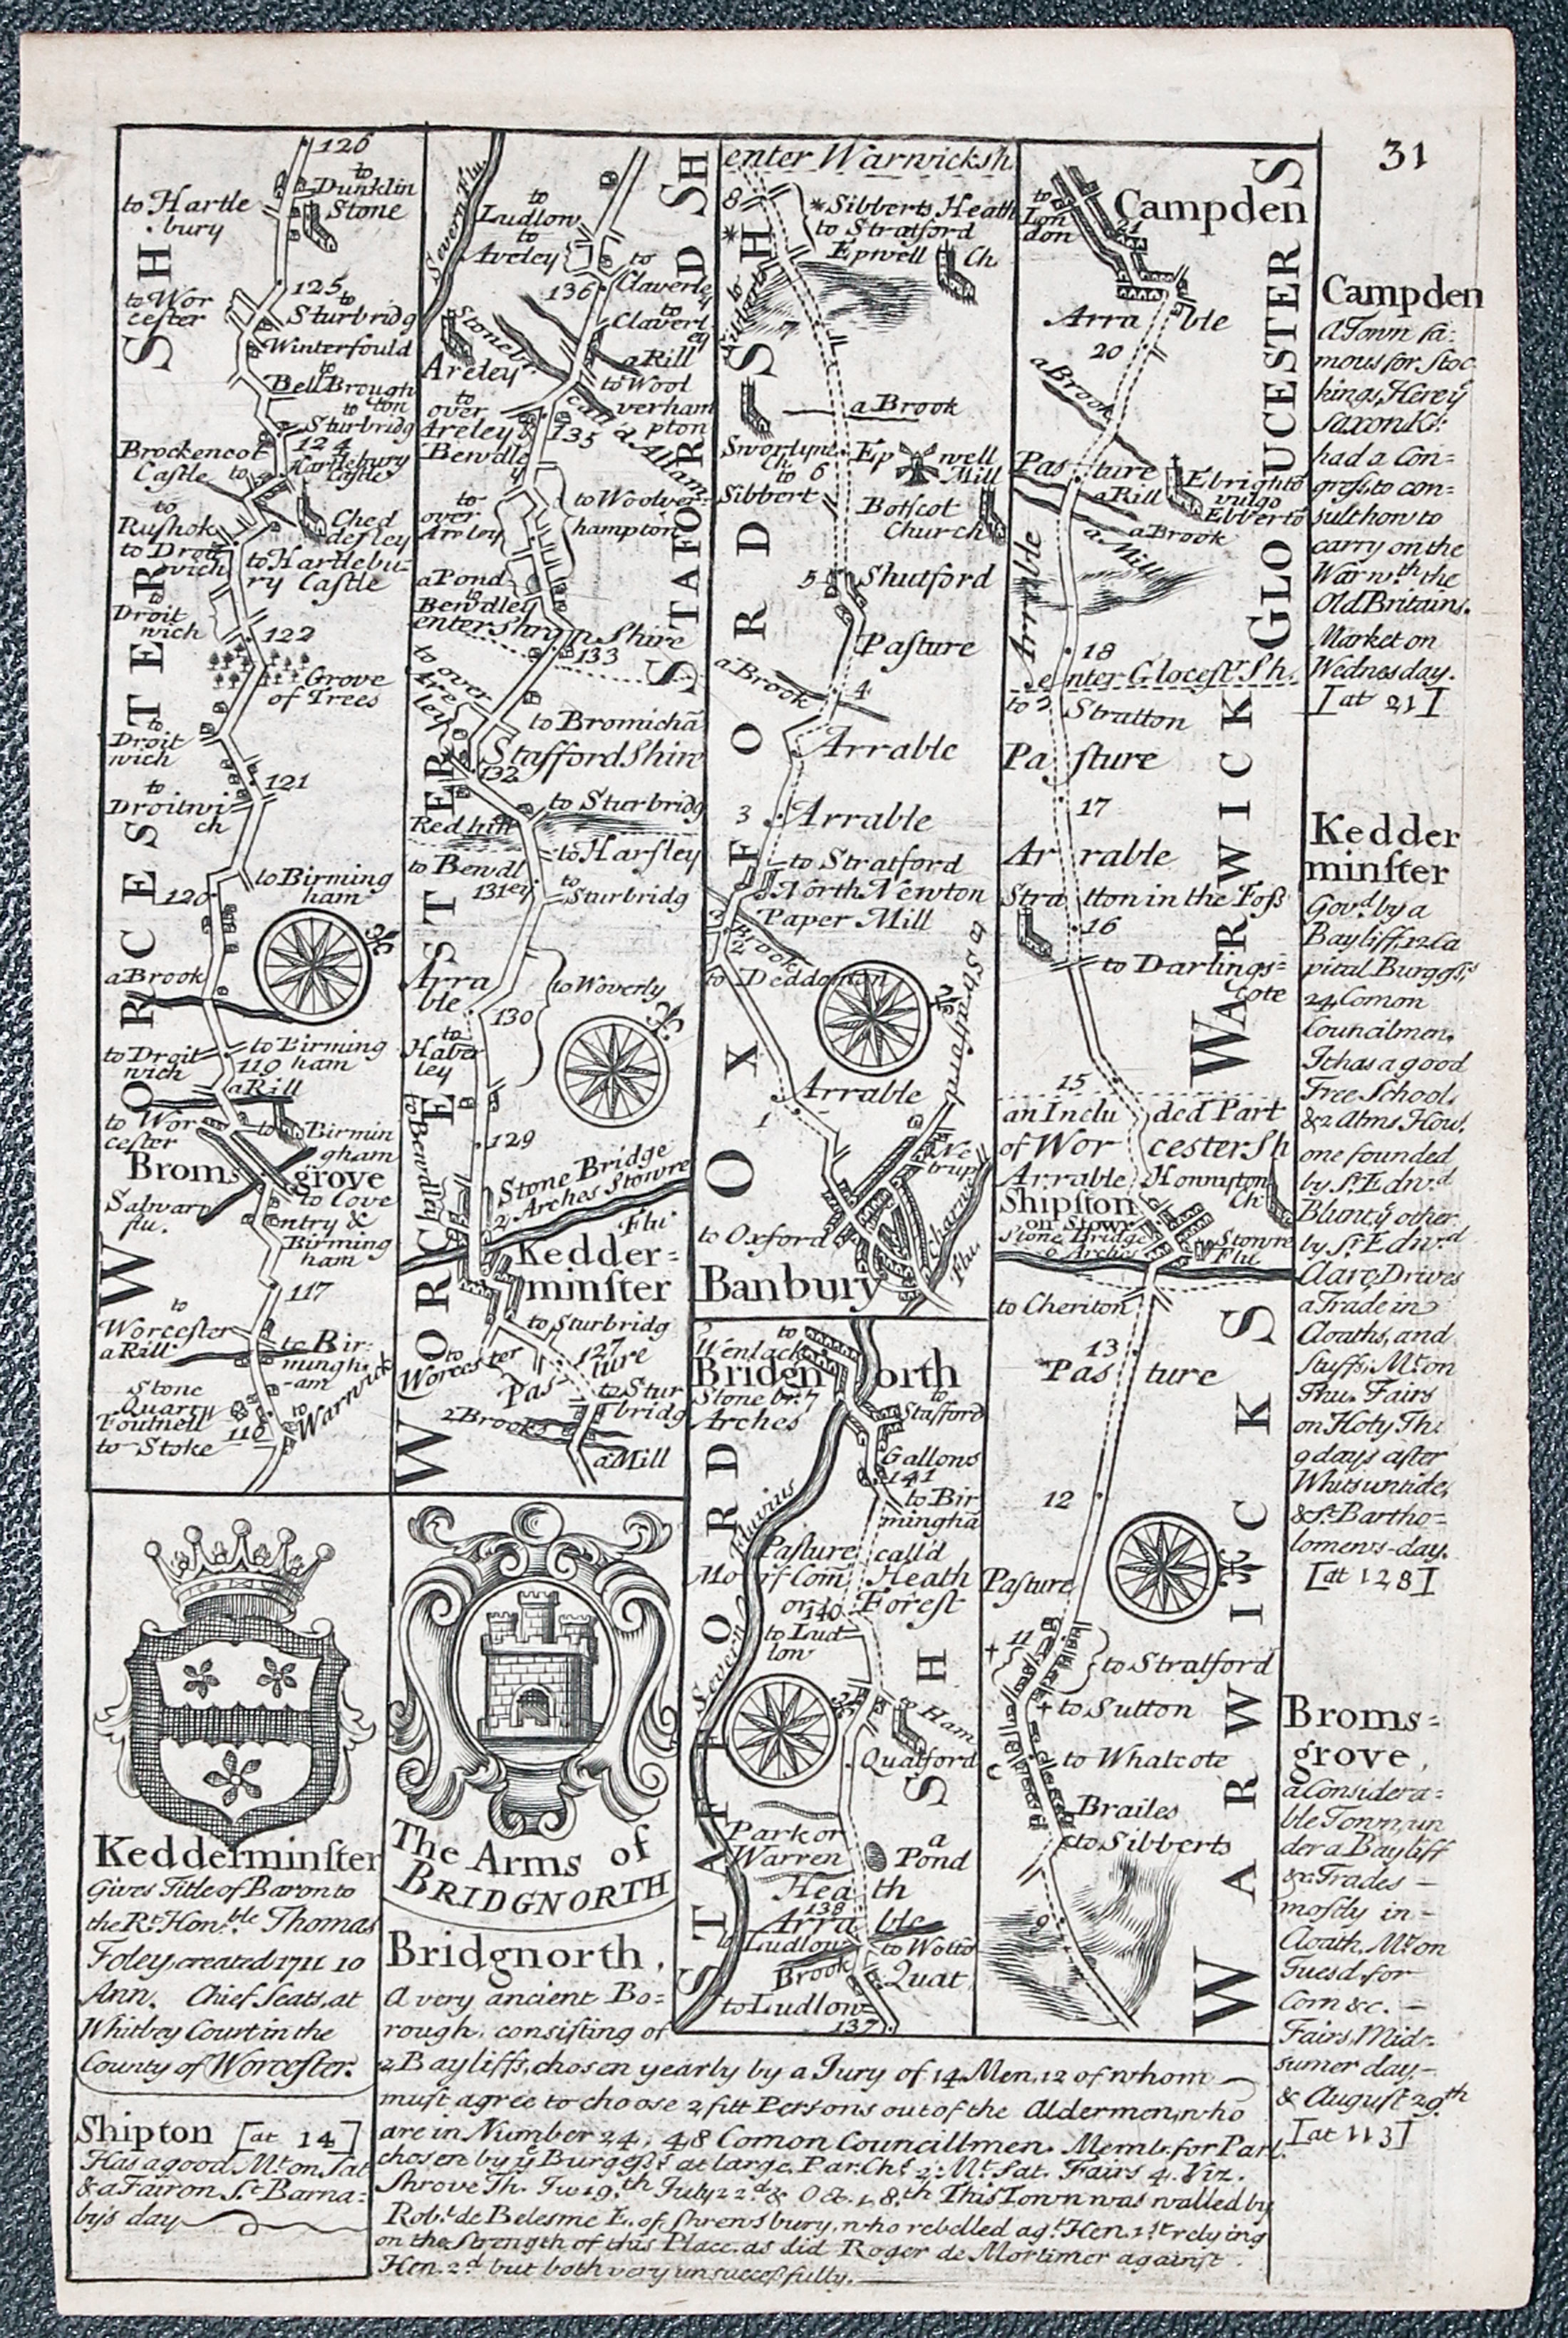 31
126
to
Dunklin
Stone
to Hartle
bury
125
to
Sturbridg
to Wor
cester
Winterfould
to
Bell Brough
ton
to
Sturbridg
124
Brockencot
Castle to
Hartlebury
Castle
to
Rushok
Ched
desley
to Droit
wich
to Hartlebu-
ry Castle
to
Droit
wich
122
Grove
of Trees
to
Droit
wich
121
to
Droitwi
ch
to Birming
ham
120
a Brook
to Birming
ham
to Droit
wich
110
a Rill
to Wor
cester
to Birmin
gham
Broms grove
Salwarp
flu.
to Cove
entry &
Birming
ham
117
to
Worcester
a Rill
to Bir-
mingh
-am
Stone
Quarry
to
Warwick
Foutnell
to Stoke
116
WORCESTER SH
Severn Flu.
to
Ludlow
to
Aveley
to
Claverle
y
136
to
Claverl
ey
Stonebr.
Areley
a Rill
to Wool
verham
pton
to
over
Areley
135
call'd Allam
Bewdle
y
to
over
Arley
to Woolver-
hampton
a Pond
to
Bewdley
enter Shrop Shire
133
to over
Are
ley
to Bromichã
Stafford Shire
132
to Sturbridg
Red hill
to Harsley
to Bewdl
ey
131
to
Sturbridg
Arra
ble
to Woverly
130
to
Haber
ley
129
to Bewdley
Stone Bridge
2 Arches Stowre
Flu.
Kedder=
minster
to Sturbridg
to
Worcester
127
Pas ture
to Stur
bridg
2 Brooks
a Mill
WORCESTER
STAFFORD SH
enter Warwicksh.
8
*Sibberts Heath
to Stratford
Epwell Ch.
*
to
Sibberts
7
a Brook
Sworlyne
Ch
to
Sibbert
6
Ep well
Mill
Botscot
Church
5
Shutford
Pasture
a Brook
4
Arrable
3
Arrable
to Stratford
North Newton
Paper Mill
a
Brook
2
to Deddonton
Arrable
1
to Oxford
Banbury
Charwel
Flu.
OXFORD SH
to
Wenlack
Bridgn orth
Stone br. 7
Arches
to
Stafford
Gallons
141
to Bir
minghã
Severn Fluvius
Pasture call'd
Morf Com Heath
or Forest
140
to Lud
low
Ham
Quatford
Park or
Warren
a
Pond
Hea th
138
Arra ble
to
Ludlow
to Wolto
Brook
Quat
to Ludlow
137
STAFFORD SH
to
Lon
don
Campden
21
Arra ble
20
a Brook
Pas ture
a Rill
Ebrighto
vulgo
Ebberto
a Brook
a Mill
Arrable
18
enter Glocestr Sh.
to Stratton
Pa sture
17
Ar rable
Stra tton in the Foss
16
to Darlings=
cote
15
an Inclu ded Part
of Wor cester Sh
Arrable
Honnyton
Ch
Shipston
on Stowr
Stone Bridge
6 Arches
Stowre
Flu
to Cheriton
13
Pas ture
12
Pasture
11
to Stratford
to Sutton
to Whatcote
Brailes
to Sibberts
9
GLOUCESTER S
WARWICK
WARWICK S
Campden
a Town fa-
mous for stoc
kings, Here ye
Saxon Ks:
had a Con=
gress, to con=
sult how to
carry on the
Warr wth the
Old Britains.
Market on
Wednesday.
[at 21]
Kedder
minster
Govd by a
Bayliff, 12 Ca
pital Burgess's
24 Comon
Councilmen,
It has a good
Free School,
& 2 Alms Hous,
one founded
by Sr Edwd
Blunt ye other
by Sr Edwd
Clare, Drives
a Trade in
Cloaths, and
stuffs, Mt on
Thu. Fairs
on Holy Th:
9 days after
Whitsuntide,
& St Bartho=
lomews-day.
[at 128]
Broms=
grove,
a Considera=
ble Town, un
der a Bayliff
&c Trades -
mostly in -
Cloath, Mt on
Tuesd. for
Corn &c. -
Fairs, Mid=
sumer day, -
& August 29th
[at 113]
Kedderminster
Gives Title of Baron to
the Rt. Honble Thomas
Foley, created 1711 10
Ann. Chief Seats, at
Whitley Court in the
County of Worcester.
Shipton [at 14]
Has a good Mt on Sat
& a Fair on St Barna=
by's day
The Arms of
BRIDGNORTH
Bridgnorth,
A very ancient Bo=
rough, consisting of
2 Bayliffs, chosen yearly by a Jury of 14 Men, 12 of whom
must agree to choose 2 fitt Persons out of the Aldermen, who
are in Number 24, 48 Comon Councillmen. Memb. for Parl.
chosen by ye Burgess's at large, Par. Chs 2. Mt Sat. Fairs 4. Viz.
Shrove Th. Tw 19th July 22d & Oct. 18th This Town was walled by
Robt de Belesme E. of Shrewsbury, who rebelled agt Hen. 1st relying
on the Strength of this Place, as did Roger de Mortimer against
Hen. 2d but both very unsuccessfully.